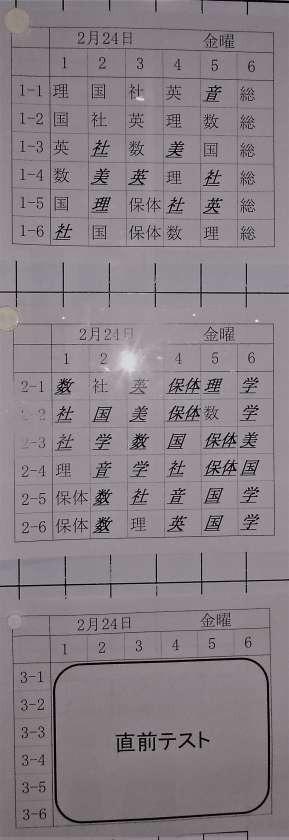 2月24日 金曜
1 2 3 4 5 6
1-1 理 国 社 英 音 総
1-2 国 社 英 理 数 総
1-3 英 社 数 美 国 総
1-4 数 美 英 理 社 総
1-5 国 理 保体 社 英 総
1-6 社 国 保体 数 理 総
2月24日 金曜
1 2 4 5 6
2-1 数 社 英 保体 理 学
2-2 社 国 美 保体 数 学
2-3 社 学 数 国 保体 美
2-4 理 音 学 社 保体 国
2-5 保体 数 社 音 国 学
2-6 保体 数 理 英 国 学
2月24日 金曜
1 2 3 4 5 6
3-1
3-2
3-3
直前テスト
3-4
3-5
3-6